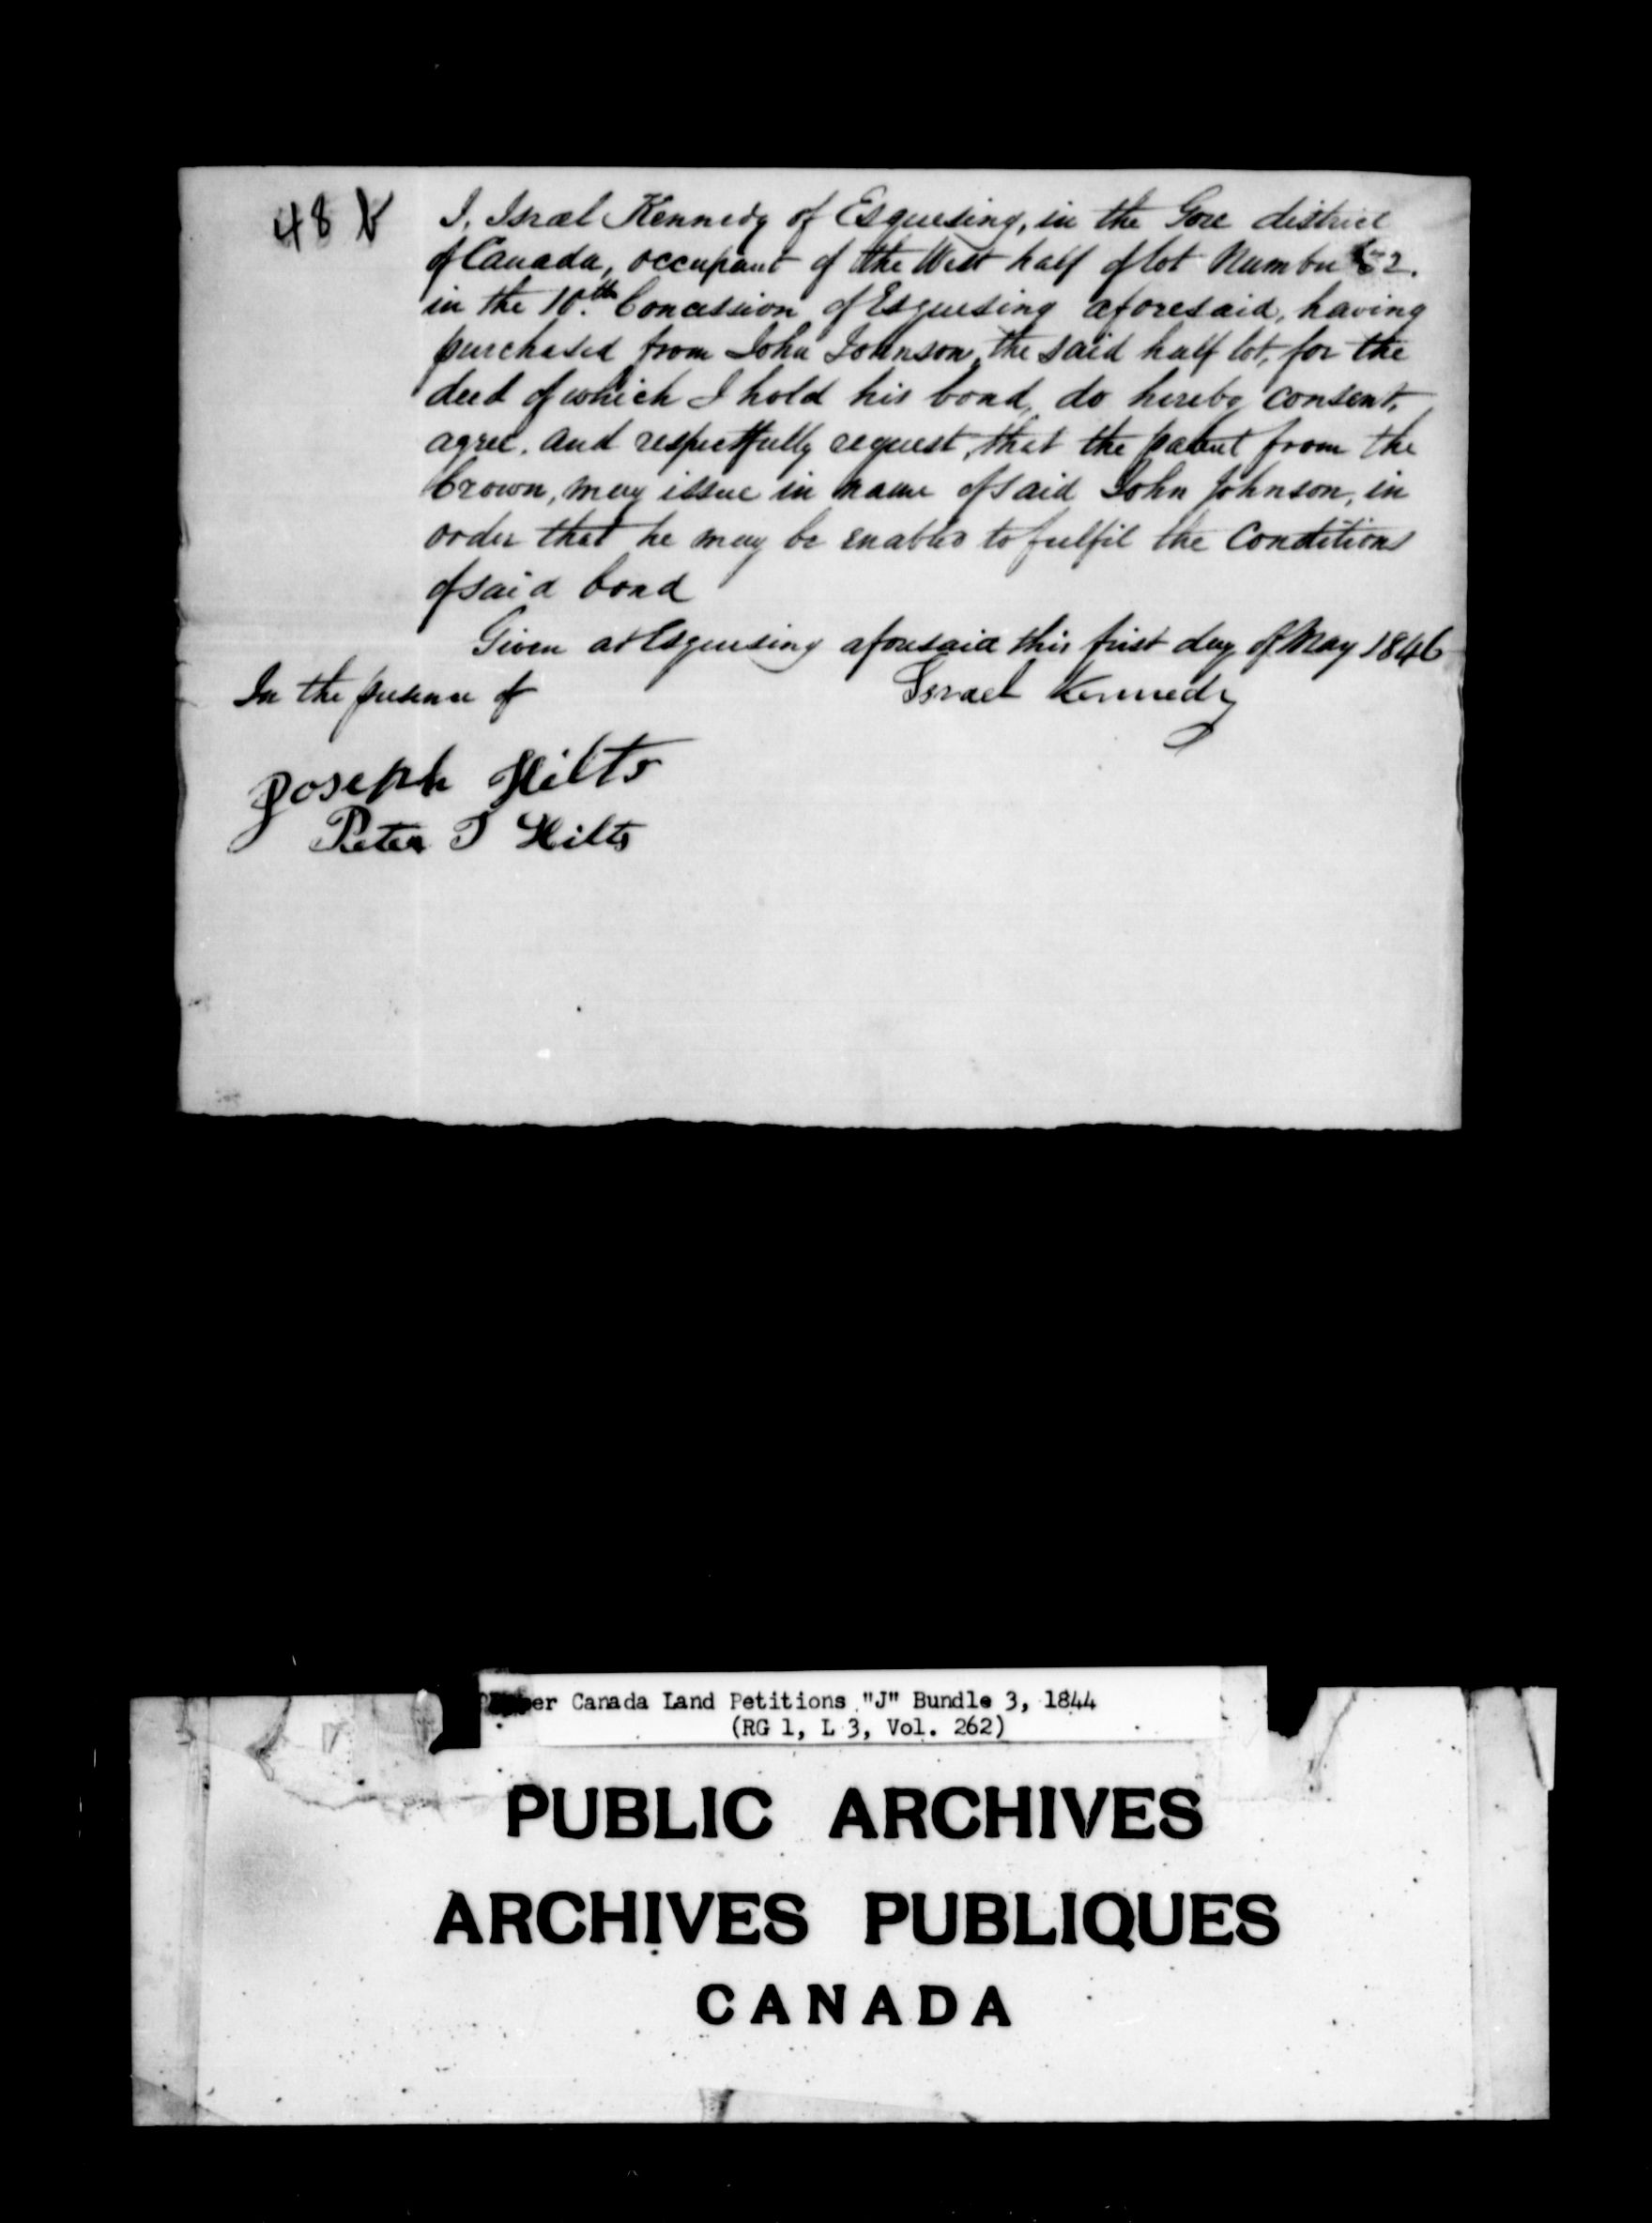 48 
I, Israel Kennedy of Esquesing, in the Gore district
of Canada, occupant of the West half of lot Number 32.
in the 10.th Concession of Esquesing aforesaid, having
purchased from John Johnson, the said half lot, for the
deed of which I hold his bond, do hereby consent,
agree, and respectfully request, that the patent from the
Crown, may issue in name of said John Johnson, in
order that he may be enabled to fulfil the Conditions
of said bond
Given at Esquesing aforesaid this first day of May 1846
In the presence of
Israel Kennedy
Joseph Hilts
Peter J Hilts
er Canada Land Petitions "J" Bundle 3, 1844
(RG 1, L 3, Vol. 262)
PUBLIC ARCHIVES
ARCHIVES PUBLIQUES
CANADA